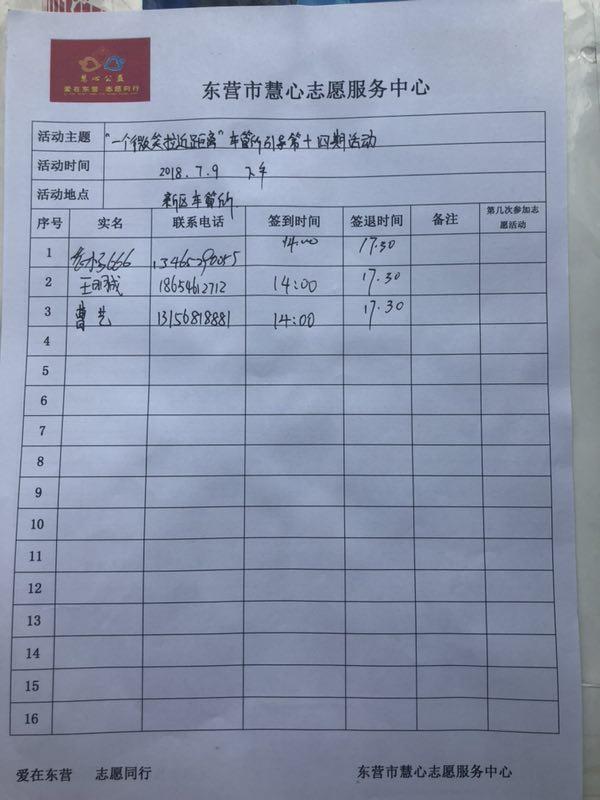 慧心公益
爱在东营 志愿同行
东营市慧心志愿服务中心
活动主题 “一个微笑拉近距离”车管所引导第十四期活动
活动时间 2018.7.9 下午
活动地点 新区车管所
序号 实名 联系电话 签到时间 签退时间 备注 第几次参加志愿活动
1 666 14:00 17.30
2 王 18654612712 14:00 17.30
3 曹艺 13156818881 14:00 17.30
4
5
6
7
8
9
10
11
12
13
14
15
16
爱在东营 志愿同行 东营市慧心志愿服务中心